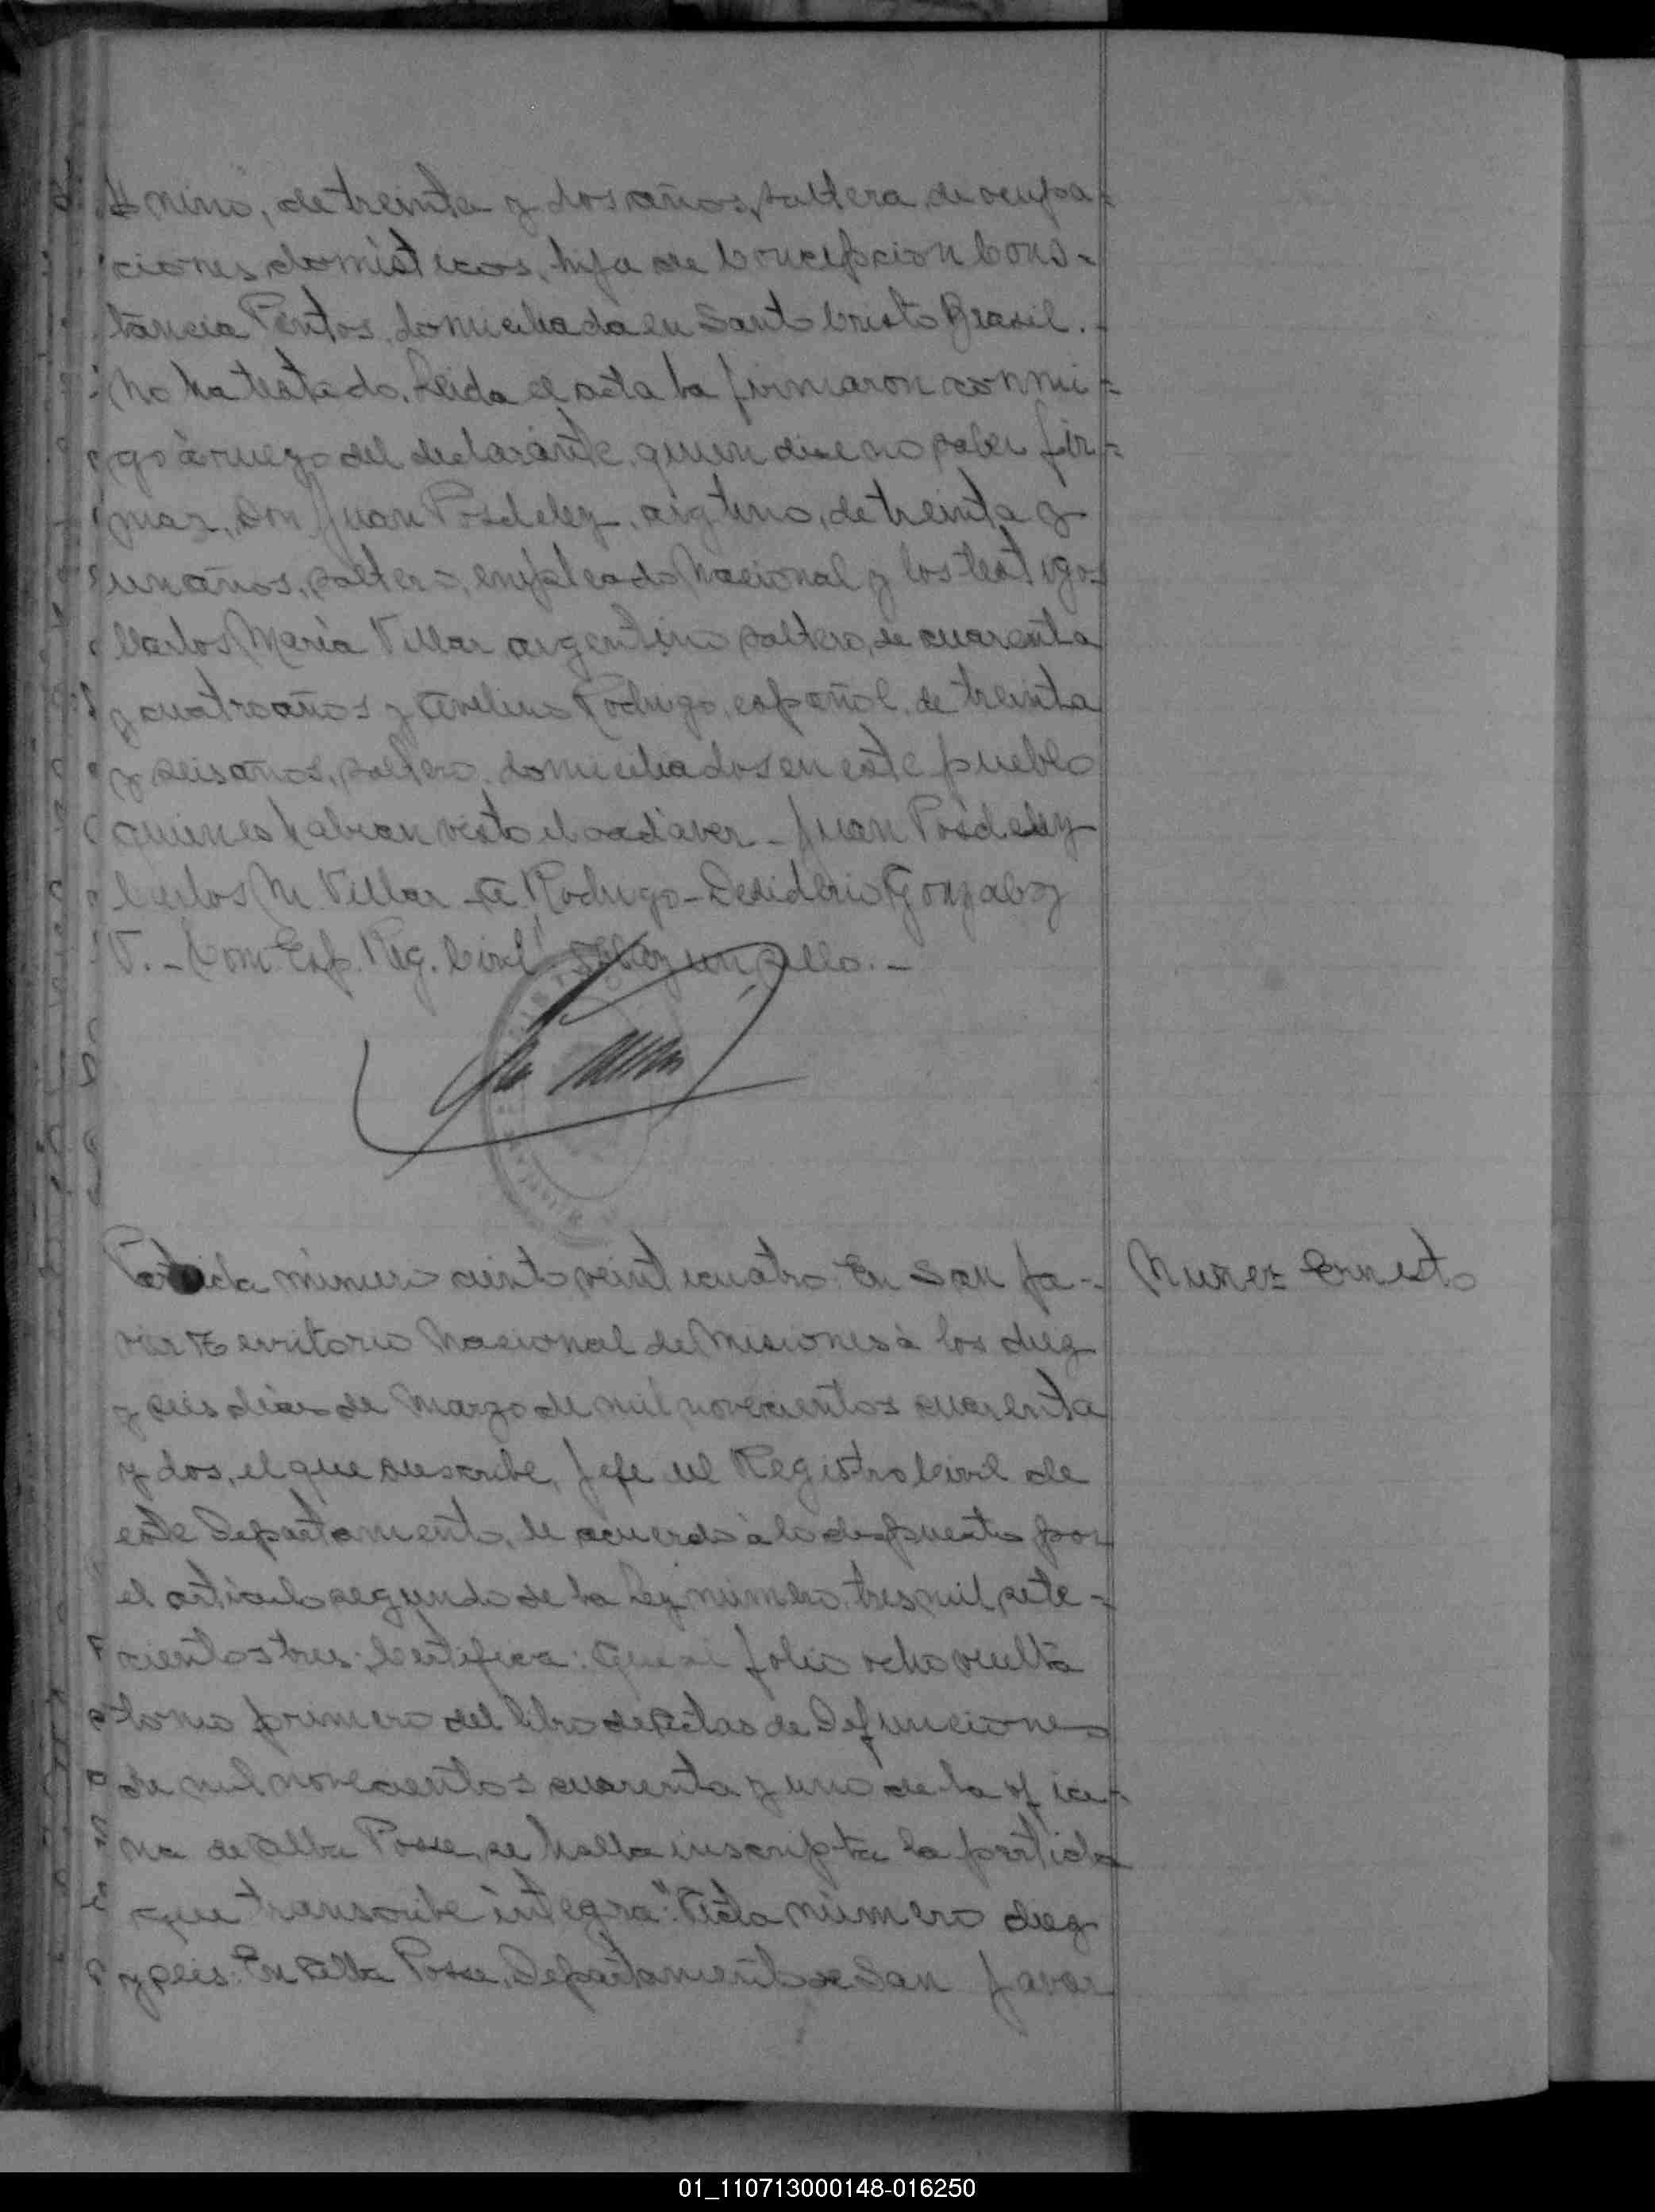 nino, de treinta y dos años, soltera, de ocupa=
ciones domésticos, hija de Concepcion Cons=
tancia Pintos, domiciliada en Santo Cristo Brasil.-
No ha testado. Leida el acta la firmaron conmi=
go à ruego del declarante, quien dice no saber fir=
mar, don Juan Posdeley, argtino, de treinta y
un años, soltero, empleado Nacional y los testigos
Carlos María Villar argentino soltero, de cuarenta
y cuatro años y Avelino Rodrigo, español, de treinta
y seis años, soltero, domiciliados en este pueblo
quienes habian visto el cadáver - Juan Posdeley
Carlos M. Villar - A. Rodrigo - Desiderio Gonzalez
V. - Com. Esp. Reg. Civil. Hay un sello. -
Partida número ciento veinticuatro. En San Ja-
Nuñez Ernesto
vier Territorio Nacional de Misiones à los diez
y seis dias de Marzo de mil novecientos cuarenta
y dos, el que suscribe, Jefe del Registro Civil de
este Departamento, de acuerdo à lo dispuesto por
el articulo segundo de la Ley número tres mil sete-
cientos tres; Certifica: Que al folio ocho vuelta
tomo primero del libro de Actas de Defunciones
de mil novecientos cuarenta y uno de la ofici-
na de Alba Posse, se halla inscripta la partida
que transcribe integra: "Acta número diez
y seis: En Alba Posse, Departamento de San Javar